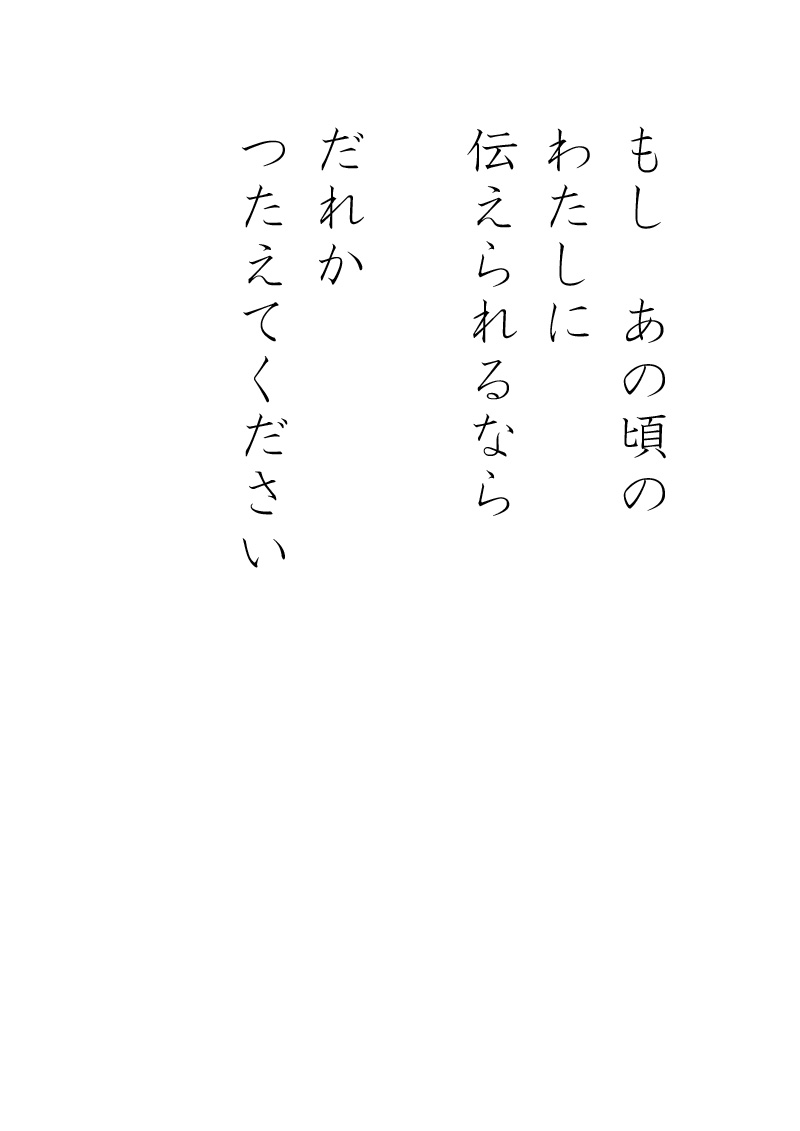 もし　あの頃の
わたしに
伝えられるなら
だれか
つたえてください